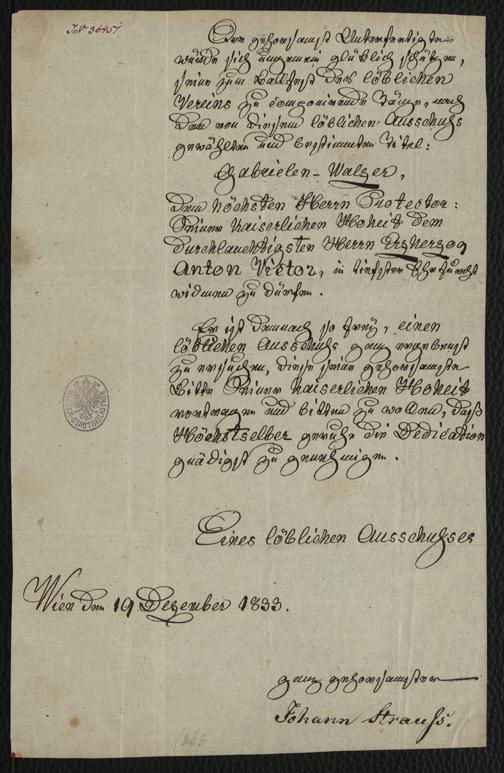 IN 36451
Der gehorsamst Unterfertigte
würde sich ungemein glücklich schätzen,
seine zum Ballfest des löblichen
Vereins zu componirende Tänze, nach
dem von diesem löblichen Ausschuß
gewählten und bestimmten Titel:
Gabrielen-Walzer,
dem höchsten Herrn Protector:
Seiner Kaiserlichen Hoheit dem
durchlauchtigsten Herrn Erzherzog
Anton Victor, in tiefster Ehrfurcht
widmen zu dürfen.
Er ist demnach so frey, einen
löblichen Ausschuß ganz ergebenst
zu ersuchen, diese seine gehorsamste
Bitte Seiner Kaiserlichen Hoheit
vortragen und bitten zu wollen, daß
Höchstselber geruhe die Dedication
gnädigst zu genehmigen.
Eines löblichen Ausschußes
Wien den 19 Dezember 1833.
ganz gehorsamster
Johann Strauß.